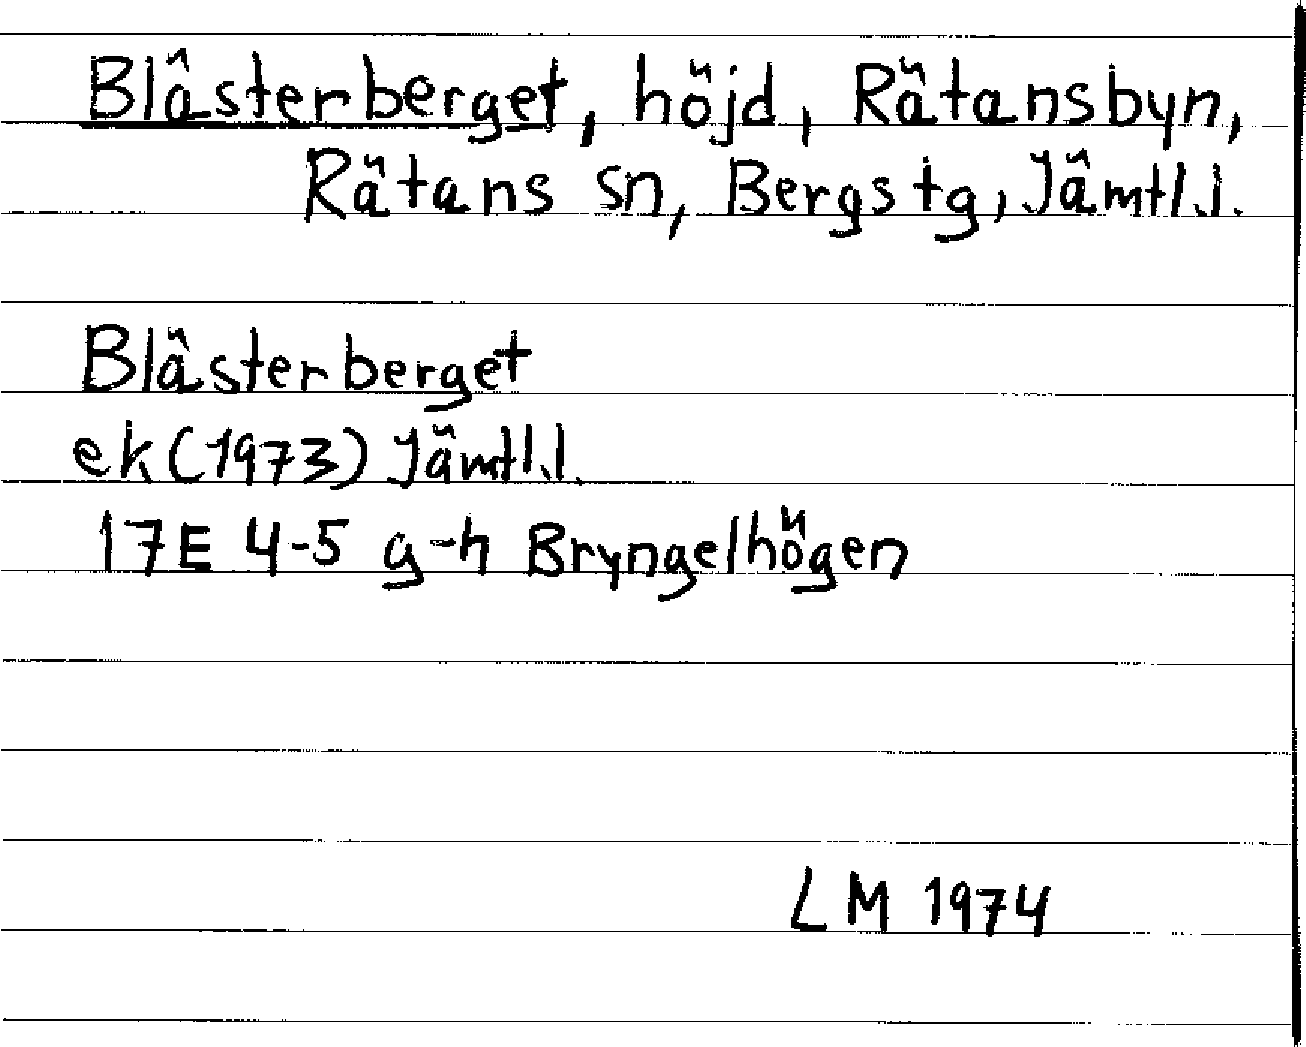 Blästerberget, höjd, Rätansbyn,
Rätans sn, Bergs tg, Jämtl.l.
Blästerberget
ek (1973) Jämtl.l.
17E 4-5 g-h Bryngelhögen
LM 1974